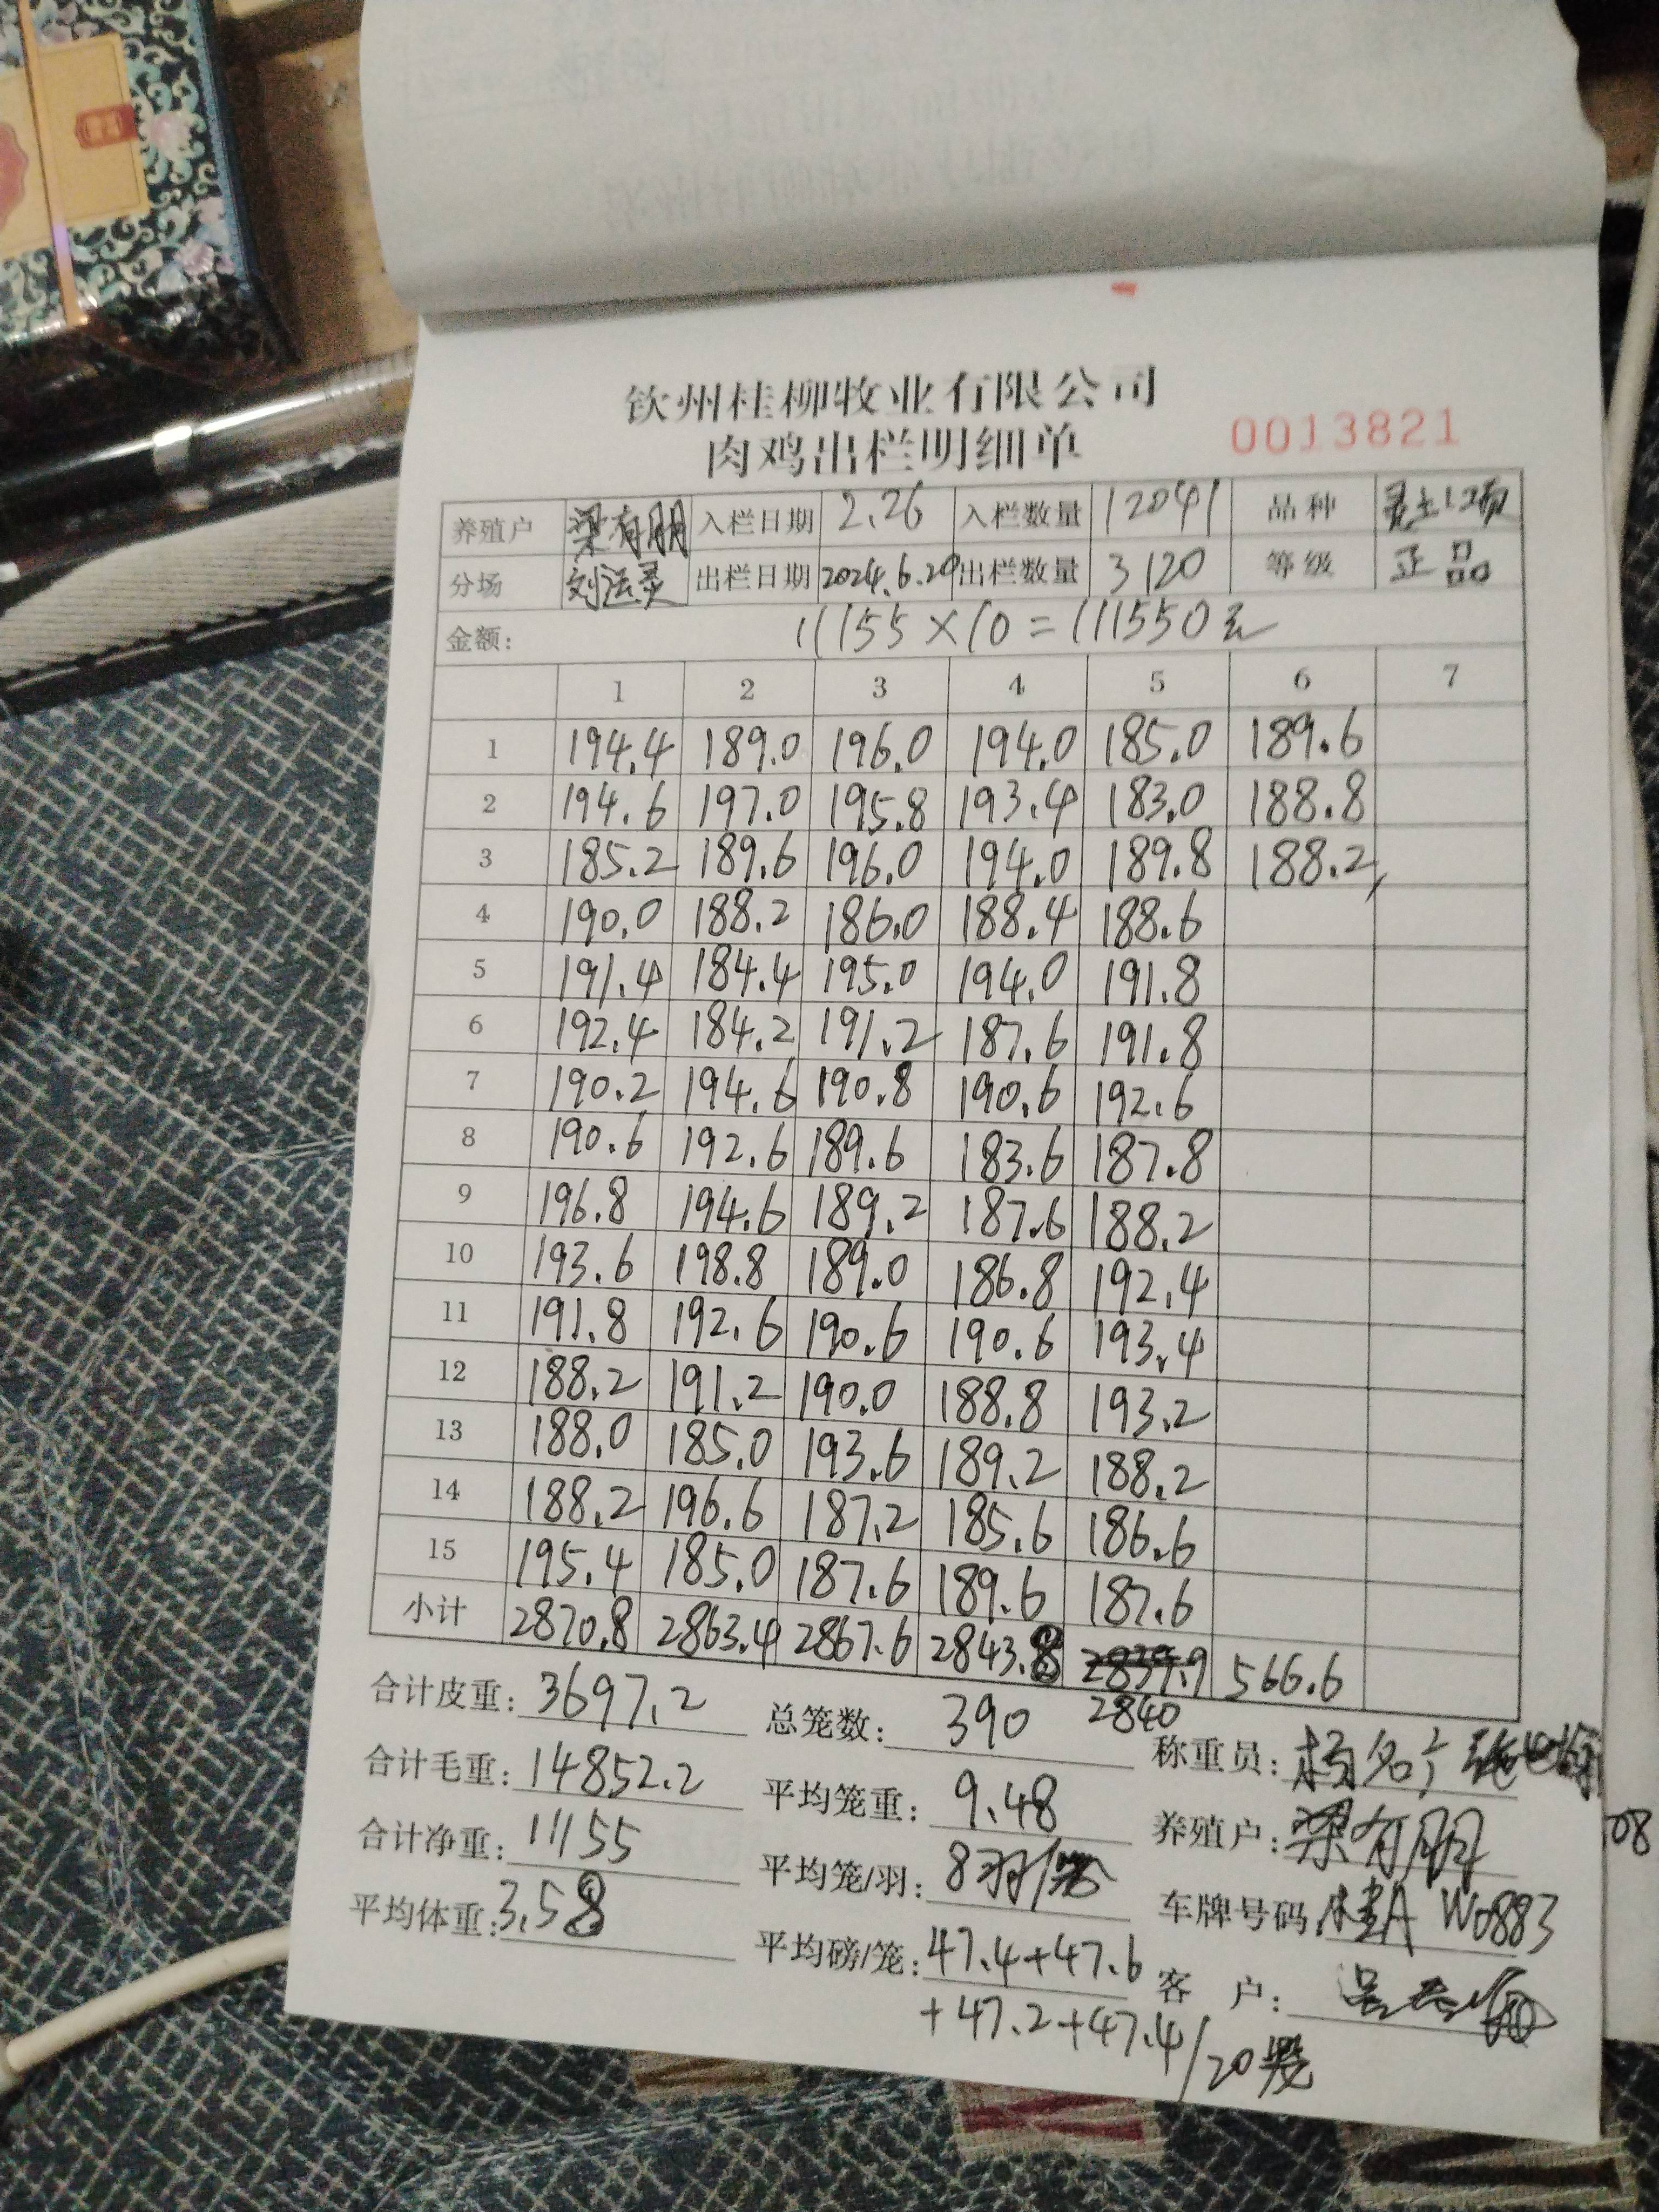 钦州桂柳牧业有限公司
肉鸡出栏明细单 0013821
养殖户 梁有朋 入栏日期 2.26 入栏数量 12041 品种
分场 出栏日期 2024.6.20 出栏数量 3120 等级 正品
金额: 11155×10=111550元
1 2 3 4 5 6 7
1 194.4 189.0 196.0 194.0 185.0 189.6
2 194.6 197.0 195.8 193.4 183.0 188.8
3 185.2 189.6 196.0 194.0 189.8 188.2
4 190.0 188.2 186.0 188.4 188.6
5 191.4 184.4 195.0 194.0 191.8
6 192.4 184.2 191.2 187.6 191.8
7 190.2 194.6 190.8 190.6 192.6
8 190.6 192.6 189.6 183.6 187.8
9 196.8 194.6 189.2 187.6 188.2
10 193.6 198.8 189.0 186.8 192.4
11 191.8 192.6 190.6 190.6 193.4
12 188.2 191.2 190.0 188.8 193.2
13 188.0 185.0 193.6 189.2 188.2
14 188.2 196.6 187.2 185.6 186.6
15 195.4 185.0 187.6 189.6 187.6
小计 2870.8 2863.4 2867.6 2843.8 2839.9 566.6
2840
合计皮重: 3697.2 总笼数: 390 称重员: 杨名广
合计毛重: 14852.2 平均笼重: 9.48 养殖户: 梁有朋
合计净重: 11155 平均笼/羽: 8羽/笼 车牌号码: 桂A W0883
平均体重: 3.58 平均磅/笼: 47.4+47.6 客户:
+47.2+47.4/20
08